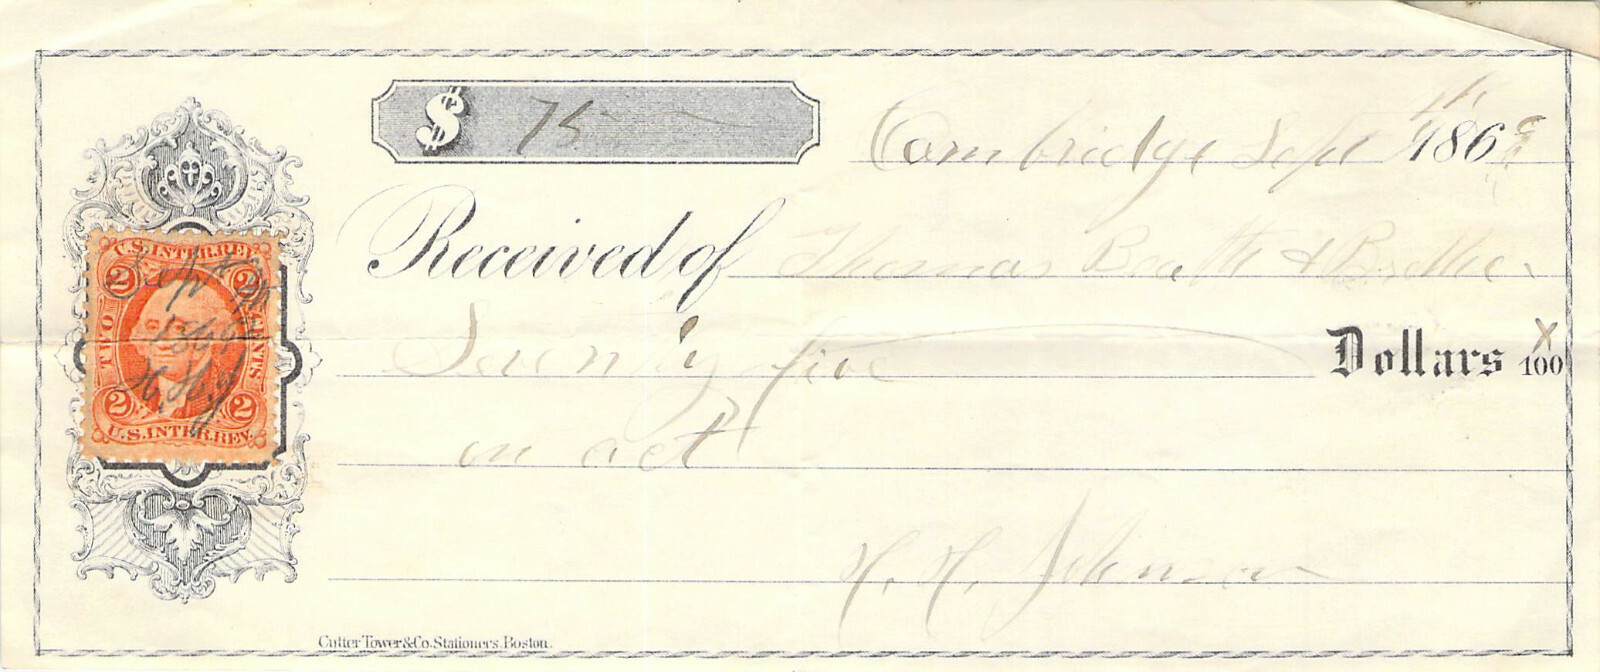 $ 75
Cambridge Sept 4th 1869
Received of Thomas Booth & Brother
Seventy five Dollars X/100
on act
H. H. Johnson
Cutter Tower & Co. Stationers, Boston.
U.S. INTER. REV.
2 2
TWO CENTS
Sept
2 2
U.S. INTER. REV.